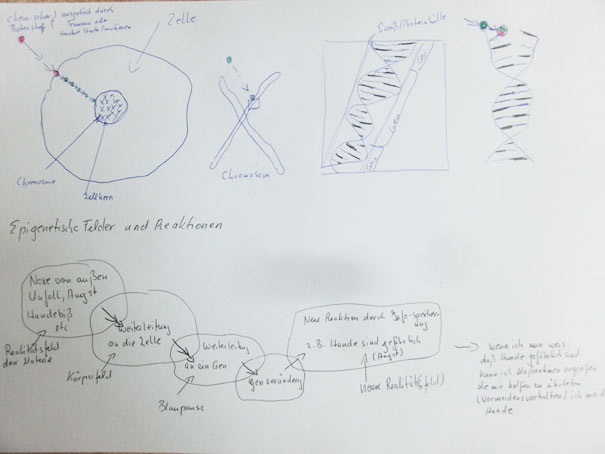 chemischer ausgelöst durch
Botenstoff
Zelle
Chromosome
Zellkern
Chromosom
Gen
Gen
Gen
Epigenetische Felder und Reaktionen
Noxe von außen
Unfall, Angst
Hundebiß
etc
Realitätsfeld
der Materie
Weiterleitung
an die Zelle
Körperfeld
Weiterleitung
an ein Gen
Blaupause
Genveränderg
Neue Reaktion durch Info-speicher-
ung
z.B. Hunde sind gefährlich
(Angst)
neue Realität(sfeld)
wenn ich nun weis
daß Hunde gefährlich sind
kann ich Maßnahmen ergreifen
die mir helfen zu überleben
(Vermeidensverhalten) ich meide
Hunde